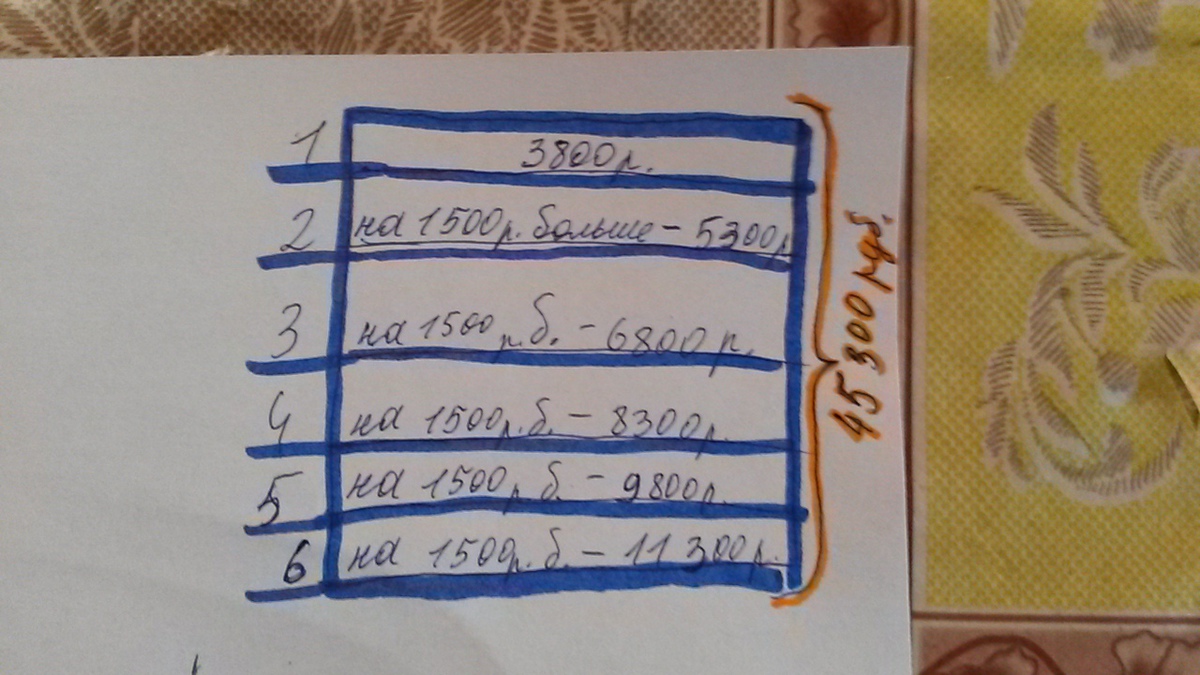 1 3800р.
2 на 1500р. больше - 5300р
3 на 1500 р.б. - 6800р.
4 на 1500р.б. - 8300р.
5 на 1500р.б. - 9800р.
6 на 1500р.б. - 11300р.
45300 руб.